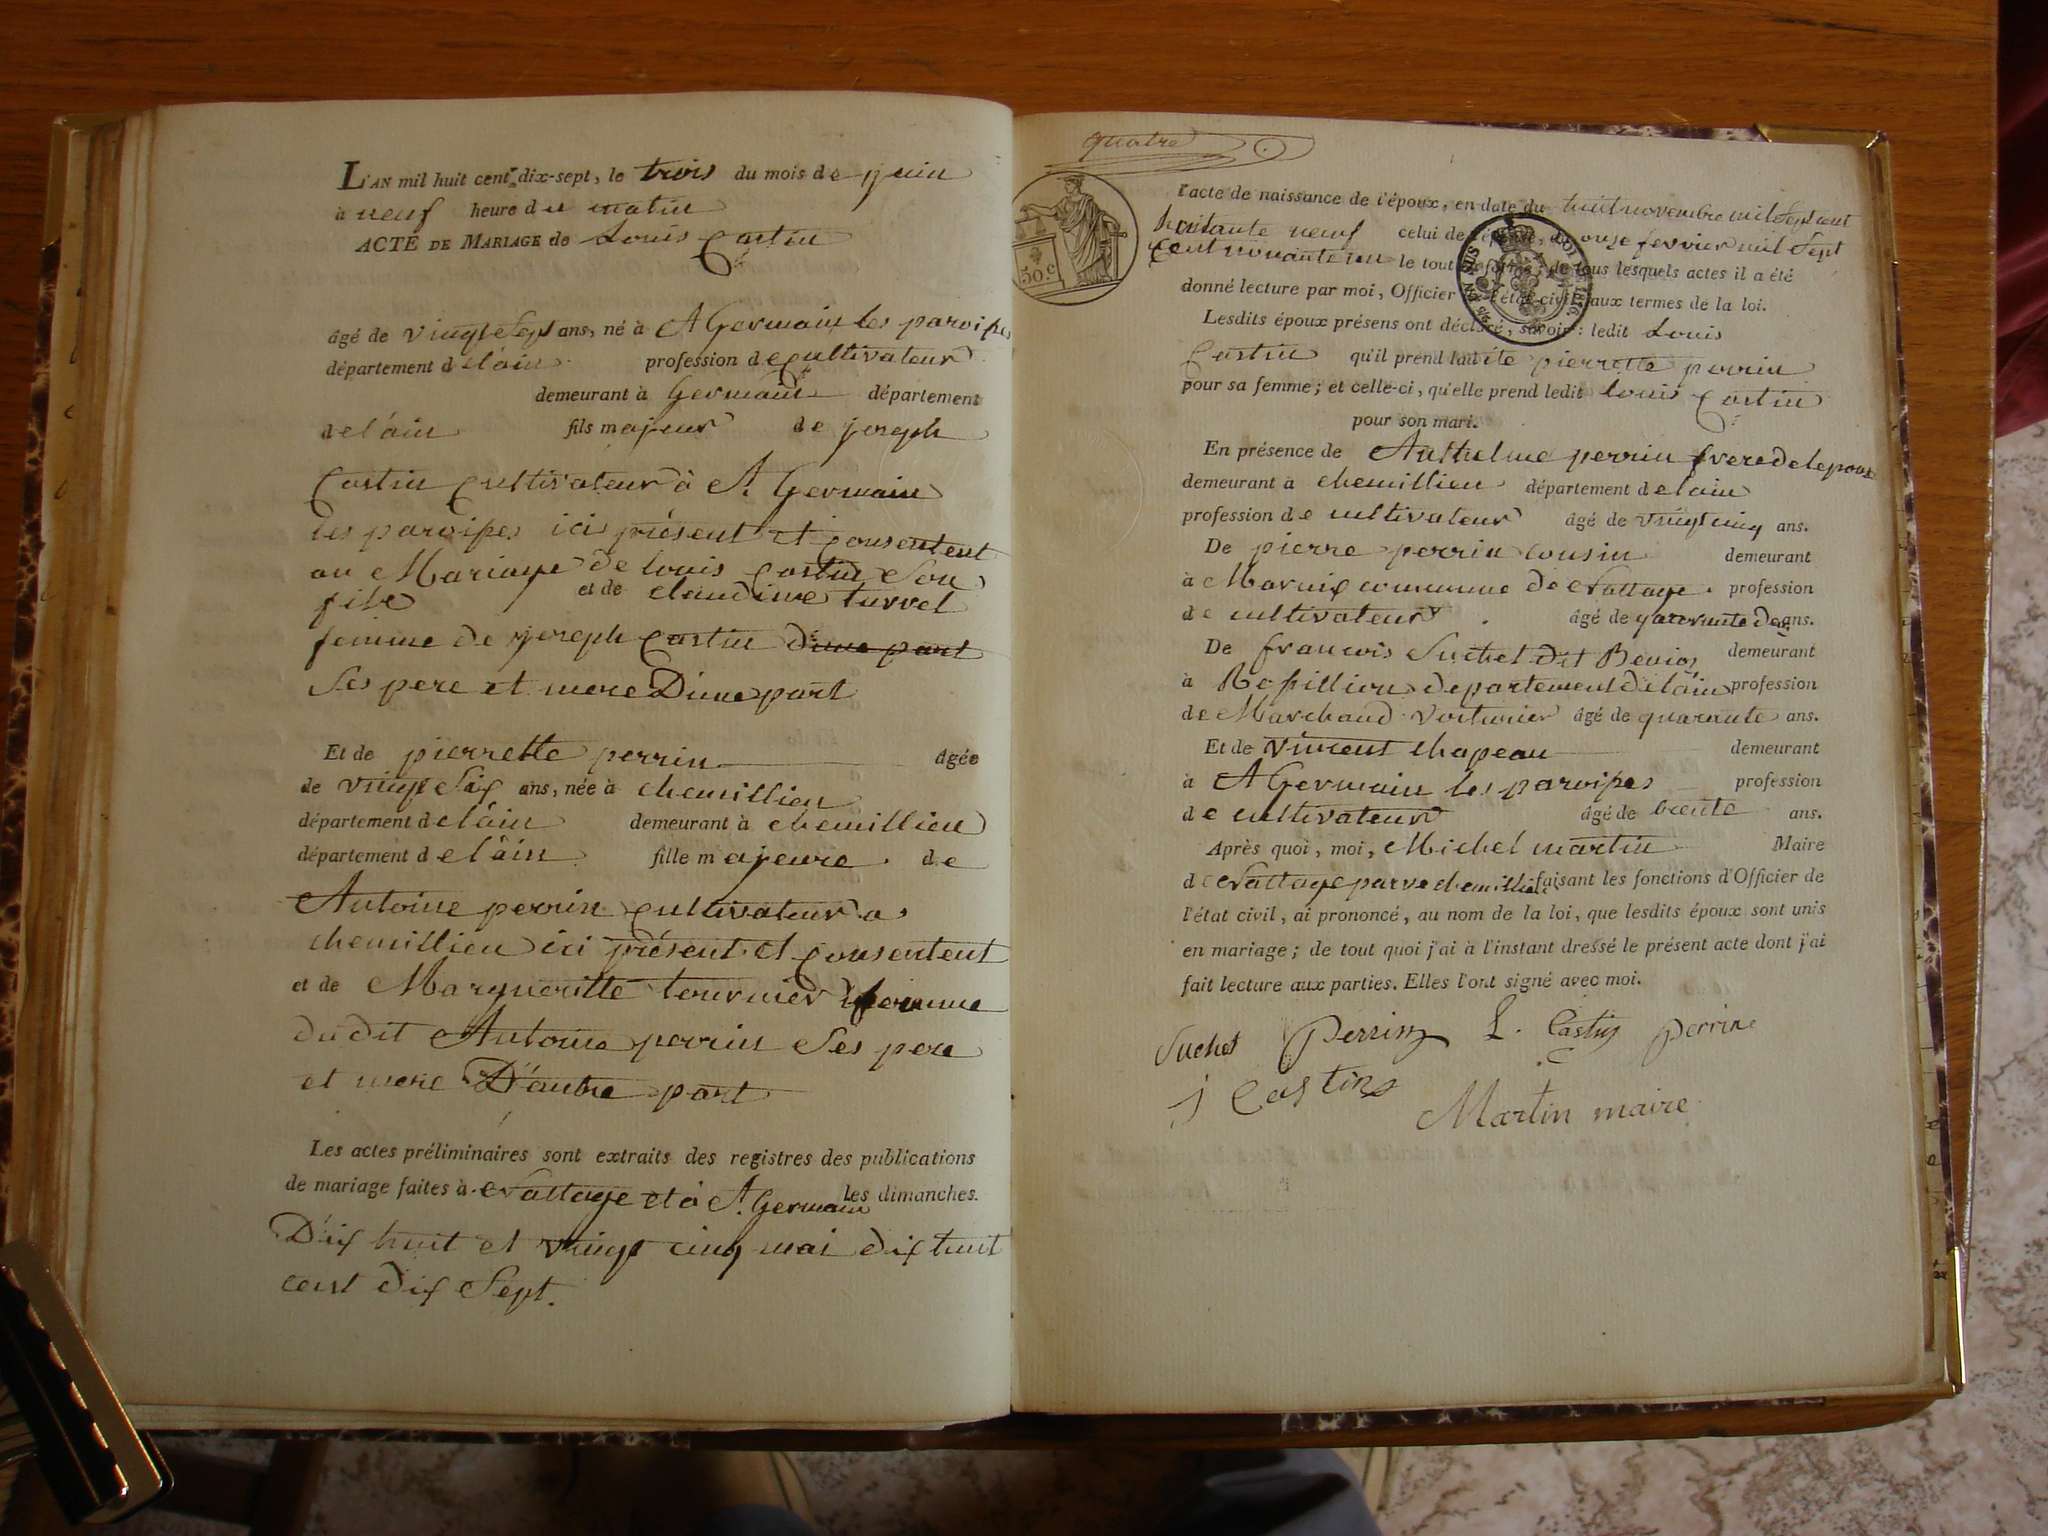 L'AN mil huit cent dix-sept, le trois du mois de juin
à neuf heure du matin
ACTE DE MARIAGE de Louis Castin
âgé de vingt sept ans, né à St Germain les paroisses
département de lain profession de cultivateur
demeurant à St Germain département
de lain fils majeur de joseph
Castin Cultivateur à St. Germain
les paroisses ici présent et Consentent
au Mariage de louis Castin Son
fils et de claudine turrel
femme de joseph Castin dune part
Ses pere et mere Dune part
Et de pierrette perrin âgée
de vingt Six ans, née à chemillieu
département de lain demeurant à chemillieu
département de lain fille majeure de
Antoine perrin Cultivateur a
chemillieu ici présent et Consentent
et de Margueritte tournier femme
du dit Antoine perrin Ses pere
et mere D'autre part
Les actes préliminaires sont extraits des registres des publications
de mariage faites à Nattage et à St. Germain les dimanches.
Dix huit et vingt cinq mai dix huit
cent dix Sept.
quatre
50 c
l'acte de naissance de l'époux, en date du huit novembre mil Sept cent
huitante neuf celui de l'épouse, du onze fevrier mil Sept
Cent nonante un le tout en forme; de tous lesquels actes il a été
donné lecture par moi, Officier de l'état civil aux termes de la loi.
Lesdits époux présens ont déclaré, savoir: ledit Louis
Castin qu'il prend ladite pierrette perrin
pour sa femme; et celle-ci, qu'elle prend ledit louis Castin
pour son mari.
En présence de Anthelme perrin frere de lepouse
demeurant à chemillieu département de lain
profession de cultivateur âgé de vingt cinq ans.
De pierre perrin cousin demeurant
à Marnix commune de Nattage profession
de cultivateur âgé de ans.
De francois Suchet dit demeurant
à Rossillion departement de lain profession
de Marchand voiturier âgé de quarante ans.
Et de vincent chapeau demeurant
à St Germain les paroisses profession
de cultivateur âgé de trente ans.
Après quoi, moi, Michel martin Maire
de Nattage parve chemillieu faisant les fonctions d'Officier de
l'état civil, ai prononcé, au nom de la loi, que lesdits époux sont unis
en mariage; de tout quoi j'ai à l'instant dressé le présent acte dont j'ai
fait lecture aux parties. Elles l'ont signé avec moi.
Suchet Perrin L. Castin perrin
J Castin
Martin maire